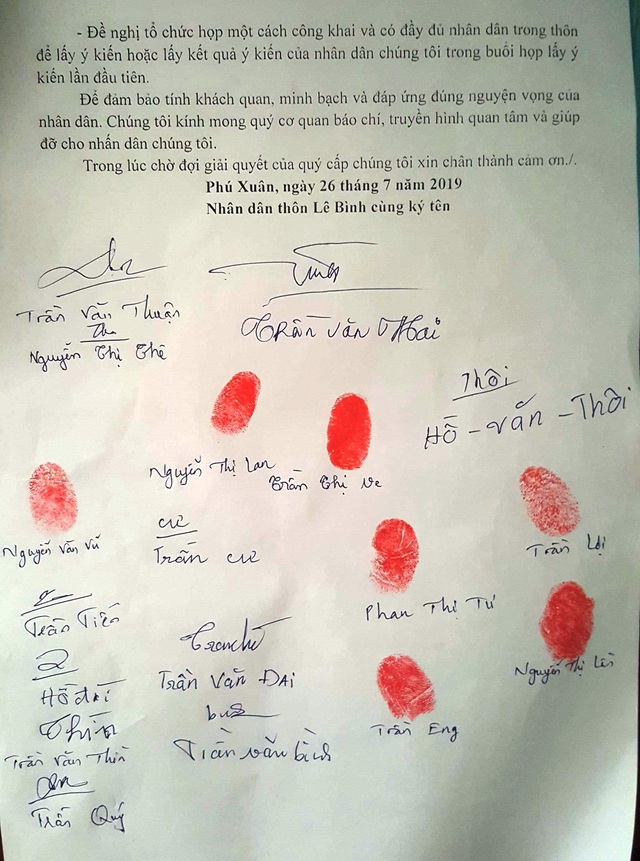 - Đề nghị tổ chức họp một cách công khai và có đầy đủ nhân dân trong thôn
để lấy ý kiến hoặc lấy kết quả ý kiến của nhân dân chúng tôi trong buổi họp lấy ý
kiến lần đầu tiên.
Để đảm bảo tính khách quan, minh bạch và đáp ứng đúng nguyện vọng của
nhân dân. Chúng tôi kính mong quý cơ quan báo chí, truyền hình quan tâm và giúp
đỡ cho nhấn dân chúng tôi.
Trong lúc chờ đợi giải quyết của quý cấp chúng tôi xin chân thành cảm ơn./.
Phú Xuân, ngày 26 tháng 7 năm 2019
Nhân dân thôn Lê Bình cùng ký tên
Trần Văn Thuận
Trần Văn Hai
Nguyễn Thị Thê
Thôi
Hồ - Văn - Thôi
Nguyễn Thị Lan
Trần Thị Ve
Nguyễn Văn Vũ
cư
Trần cư
Trần Lợi
Phan Thị Tứ
Trần Tiến
Trần Văn ĐAi
Nguyễn Thị Lên
Hồ đài
Trần Eng
Thìn
Trần Văn Thìn
Trần văn bình
Trần Quý